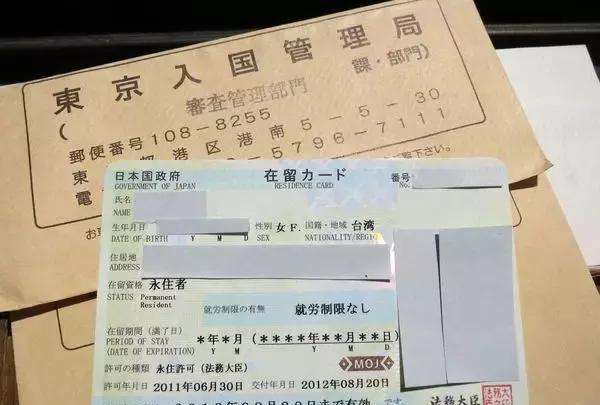 東京入国管理局
審査管理部門
( 課・部門)
郵便番号 108-8255
東 港区港南 5-5-30
電 -5796-7111
下さい。
日本国政府 在留カード 番号
GOVERNMENT OF JAPAN RESIDENCE CARD No.
氏名
NAME
生年月日 性別 女 F. 国籍・地域 台湾
DATE OF BIRTH Y M D SEX NATIONALITY/REGION
住居地
ADDRESS
在留資格 永住者
STATUS Permanent
Resident
就労制限の有無 就労制限なし
在留期間(満了日) *年*月(****年**月**日)
PERIOD OF STAY Y M Y M D
(DATE OF EXPIRATION)
MOJ
許可の種類 永住許可(法務大臣)
許可年月日 2011年06月30日 交付年月日 2012年08月20日
日まで有効
法務大臣